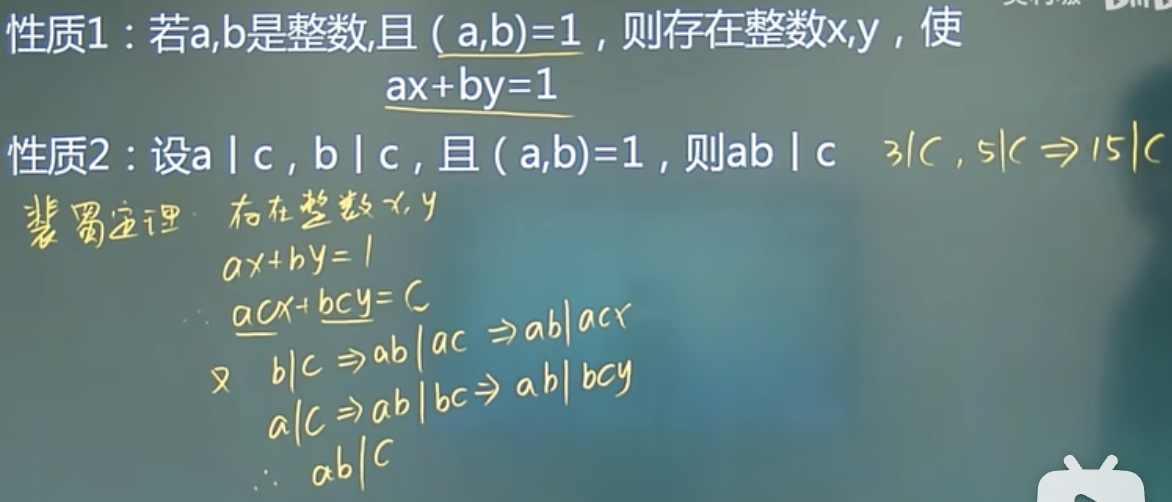 性质1：若a,b是整数,且（a,b)=1，则存在整数x,y，使
ax+by=1
性质2：设a｜c，b｜c，且（a,b)=1，则ab｜c 3|C , 5|C ⇒ 15|C
裴蜀定理 存在整数x, y
ax+by=1
∴ acx+bcy=C
又 b|C ⇒ ab|ac ⇒ ab|acx
a|C ⇒ ab|bc ⇒ ab|bcy
∴ ab|C